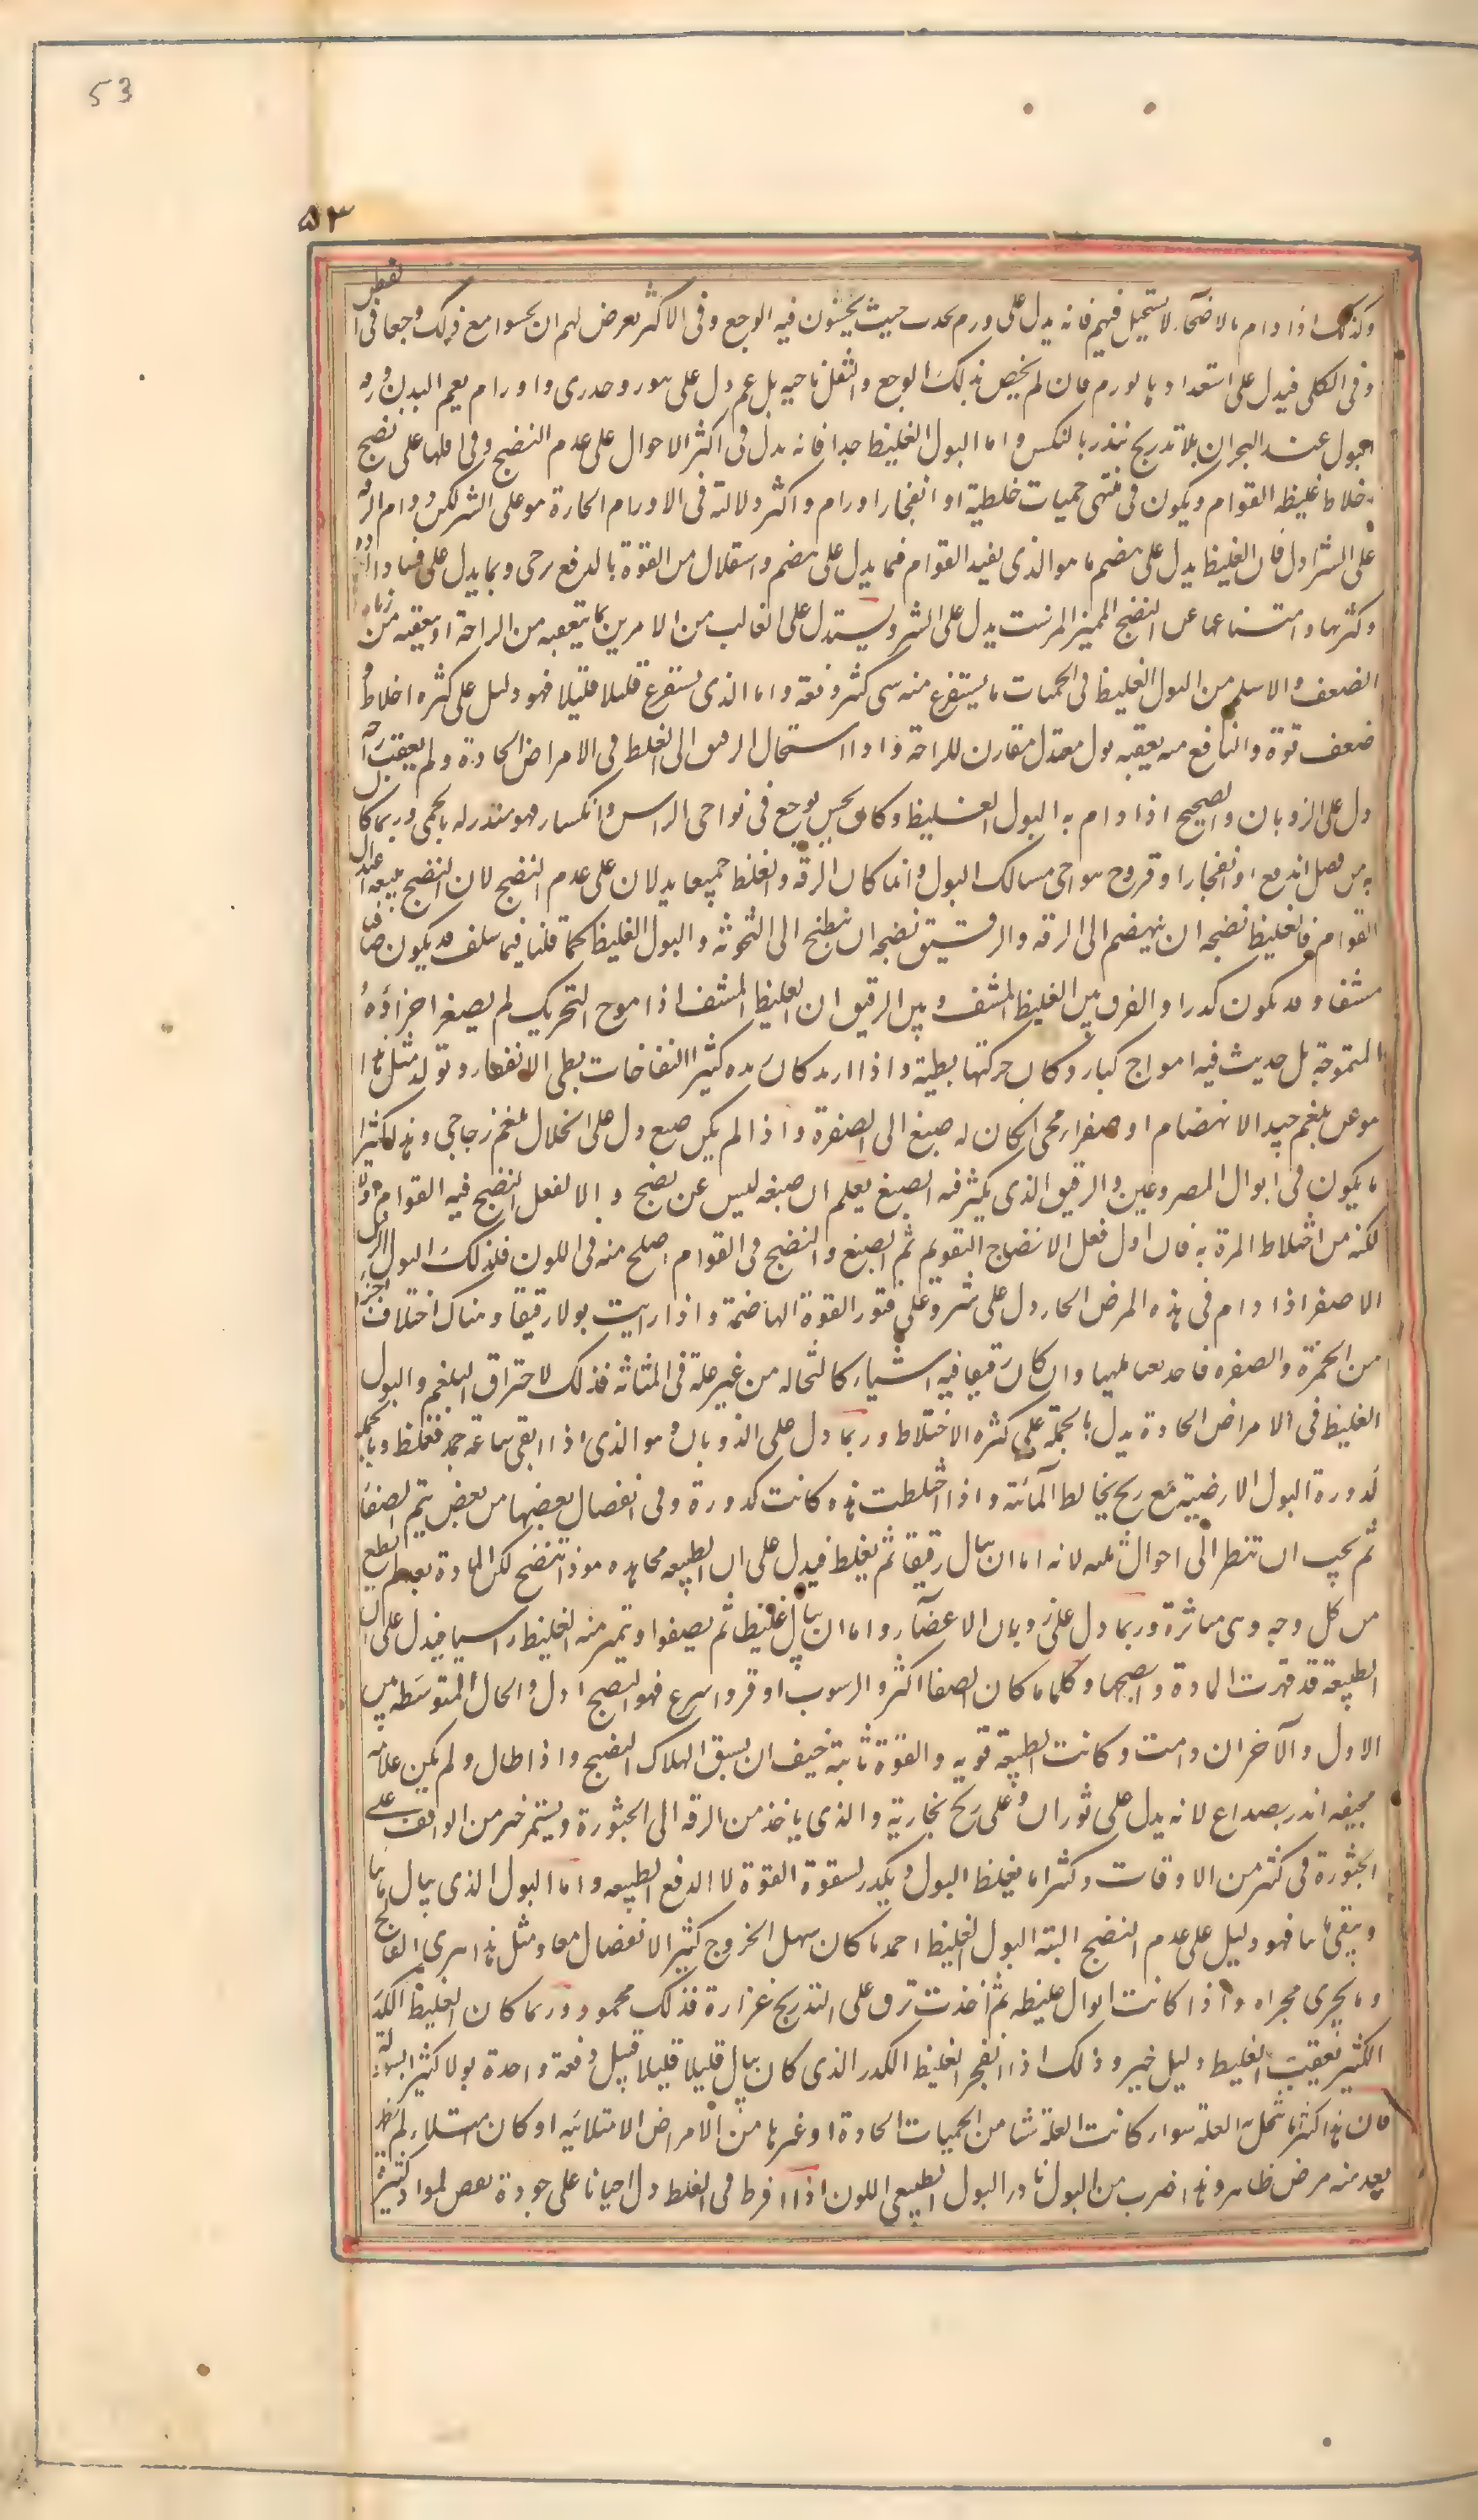 53
٥٣
وكذلك اذا دام بالاصحاء لا يستحيل فيهم فانه يدل على ورم يحدث حيث يحسّون فيه الوجع وفى الاكثر يعرض لهم ان يحسوا مع ذلك وجعا فى القطن
وفى الكلى فيدل على استعداد بالورم فان لم يخص بذلك الوجع والثقل ناحيه بل عم دل على بثور وجدرى واورام يعم البدن ورقه
البول عند البحران بلا تدريج ينذر بالنكس واما البول الغليظ جدا فانه يدل فى اكثر الاحوال على عدم النضج وفى اقلها على نضج
اخلاط غليظه القوام ويكون فى منتهى حميات خلطية او انفجار اورام واكثر دلالته فى الاورام الحارة هو على الشر لكن دوام الرقه
على الشر ادل فان الغليظ يدل على هضم ما هو الذى يفيد القوام فيما يدل على هضم واستقلال من القوة بالدفع يرجى وبما يدل على فساد المادة
وكثرتها وامتناعها عن النضج المميز المرسب يدل على الشر ويستدل على الغالب من الامرين بما يتعقبه من الراحة او يعقبه من زيادة
الضعف والاسلم من البول الغليظ فى الحميات ما يستفرغ منه شى كثير دفعة واما الذى يستفرغ قليلا قليلا فهو دليل على كثره اخلاط و
ضعف قوة والنافع منه يعقبه بول معتدل مقارن للراحة واذا استحال الرقيق الى الغلظ فى الامراض الحادة ولم يعقب راحة
دل على الذوبان والصحيح اذا دام به البول الغليظ وكان يحس بوجع فى نواحى الراس وانكسار فهو منذر له بالحمى وربما كان
به من فضل اندفع او انفجار او قروح بنواحى مسالك البول وانما كان الرقه والغلظ جميعا يدلان على عدم النضج لان النضج يتبعه اعتدال
القوام فالغليظ نضجه ان ينهضم الى الرقه والرقيق نضجه ان ينطبخ الى الثخونة والبول الغليظ كما قلنا فيما سلف قد يكون صافيا
مشفا وقد يكون كدرا والفرق بين الغليظ المشف وبين الرقيق ان الغليظ المشف اذا موج بالتحريك لم يصغر اجزاؤه
المتموجة بل حدث فيه امواج كبار وكان حركتها بطيئة واذا ازبد كان زبده كثير النفاخات بطى الانفقاء وتولد مثل هذا
هو عن بلغم جيد الانهضام او صفراء محى ان كان له صبغ الى الصفرة واذا لم يكن صبغ دل على انحلال بلغم زجاجى وهذا كثيرا
ما يكون فى ابوال المصروعين والرقيق الذى يكثر فيه الصبغ يعلم ان صبغه ليس عن نضج والا لفعل النضج فيه القوام اولا
لكنه من اختلاط المرة به فان اول فعل الانضاج التقويم ثم الصبغ والنضج فى القوام اصلح منه فى اللون فلذلك البول الرقيق
الاصفر اذا دام فى هذه المرض الحار دل على شر وعلى فتور القوة الهاضمة واذا رايت بولا رقيقا وهناك اختلاف اجزا
من الحمرة والصفره فاحدس تعبا ملهبا وان كان رقيقا فيه اشياء كالنخاله من غير علة فى المثانة فذلك لاحتراق البلغم والبول
الغليظ فى الامراض الحادة يدل بالجملة على كثره الاختلاط وربما دل على الذوبان وهو الذى اذا بقى ساعة جمد فغلظ وبالجمله
كدورة البول الارضيته مع ريح يخالط المائية واذا اختلطت هذه كانت كدورة وفى انفصال بعضها من بعض يتم الصفا
ثم يجب ان تنظر الى احوال ثلثه لانه اما ان يبال رقيقا ثم يغلظ فيدل على ان الطبيعه مجاهده هوذا تنضج لكن المادة بعد لم تطع
من كل وجه وهى متاثرة وربما دل على ذوبان الاعضاء واما ان يبال غليظا ثم يصفو او يتميز منه الغليظ راسبا فيدل على ان
الطبيعة قد قهرت المادة وانضجها وكلما ما كان الصفا اكثر والرسوب اوفر واسرع فهو النضج ادل والحال المتوسطه بين
الاول والآخر ان دامت وكانت الطبيعة قويه والقوة ثابتة خيف ان يسبق الهلاك النضج واذا طال ولم يكن علامه
مخيفه انذر بصداع لانه يدل على ثوران وعلى ريح بخارية والذى ياخذ من الرقه الى الخثورة ويستمر خير من الواقف على
الخثورة فى كثير من الاوقات وكثيرا ما يغلظ البول ويكدر لسقوة القوة لا الدفع الطبيعه واما البول الذى يبال مائيا
ويبقى مائيا فهو دليل على عدم النضج البته البول الغليظ احمده ما كان سهل الخروج كثير الانفصال معا ومثل هذا يبرى الفالج
وما يجرى مجراه واذا كانت ابوال غليظه ثم اخذت ترق على التدريج غزارة فذلك محمود وربما كان الغليظ الكدر
الكثير تعقيب الغليظ دليل خير وذلك اذا انفجر الغليظ الكدر الذى كان يبال قليلا قليلا قبل دفعة واحدة بولا كثيرا بسهولة
فان هذا كثيرا ما تنحل به العلة سواء كانت العلة شيئا من الحميات الحادة او غيرها من الامراض الامتلائيه او كان امتلاء لم يظهر
بعد منه مرض ظاهر وهذا ضرب من البول نادر البول الطبيعى اللون اذا افرط فى الغلظ دل احيانا على جودة نفض لمواد كثيرة